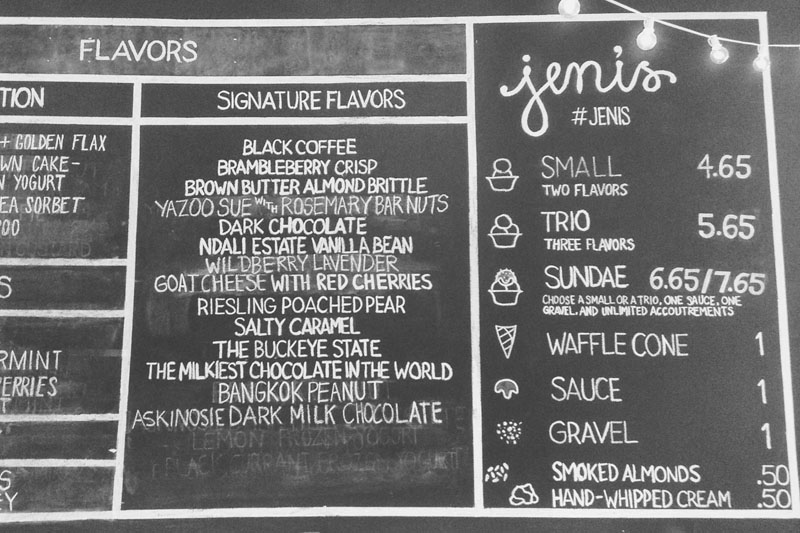 FLAVORS
TION
+ GOLDEN FLAX
WN CAKE-
N YOGURT
EA SORBET
S
RMINT
ERRIES
T
S
EY
SIGNATURE FLAVORS
BLACK COFFEE
BRAMBLEBERRY CRISP
BROWN BUTTER ALMOND BRITTLE
YAZOO SUE WITH ROSEMARY BAR NUTS
DARK CHOCOLATE
NDALI ESTATE VANILLA BEAN
WILDBERRY LAVENDER
GOAT CHEESE WITH RED CHERRIES
RIESLING POACHED PEAR
SALTY CARAMEL
THE BUCKEYE STATE
THE MILKIEST CHOCOLATE IN THE WORLD
BANGKOK PEANUT
ASKINOSIE DARK MILK CHOCOLATE
LEMON FROZEN YOGURT
BLACK CURRANT FROZEN YOGURT
jeni's
#JENIS
SMALL 4.65
TWO FLAVORS
TRIO 5.65
THREE FLAVORS
SUNDAE 6.65/7.65
CHOOSE A SMALL OR A TRIO, ONE SAUCE, ONE
GRAVEL, AND UNLIMITED ACCOUTREMENTS
WAFFLE CONE 1
SAUCE 1
GRAVEL 1
SMOKED ALMONDS .50
HAND-WHIPPED CREAM .50